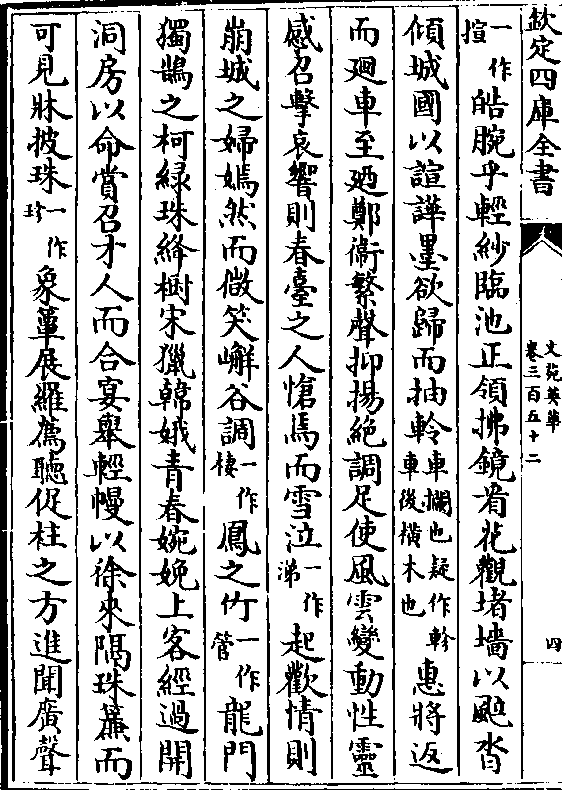 欽定四庫全書
文苑英華
卷三百五十二
四
一作揎皓腕乎輕紗臨池正領拂鏡看花觀堵墻以颷沓
傾城國以諠譁墨欲歸而抽軨車欄也疑作軫車後橫木也惠將返
而廻車至廼鄭衞繁聲抑揚絶調足使風雲變動性靈
感召擊哀響則春臺之人愴焉而雪泣一作涕起歡情則
崩城之婦嫣然而㣲笑嶰谷調一作棲鳳之竹一作管龍門
獨鵠之柯緑珠絳樹宋獵韓娥青春婉娩上客經過開
洞房以命賞召才人而合宴舉輕幔以徐來隔珠簾而
可見牀披珠一作珍象簟展羅薦聽促柱之方進聞廣聲